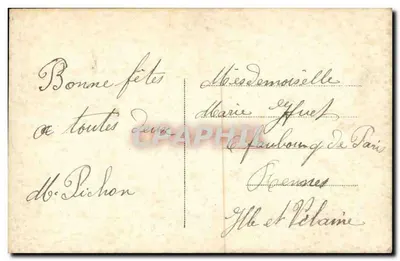 Bonne fêtes
à toutes deux
Me Pichon
Mesdemoiselle
Marie
faubourg de Paris
Rennes
Ille et Vilaine
CPAPHIL